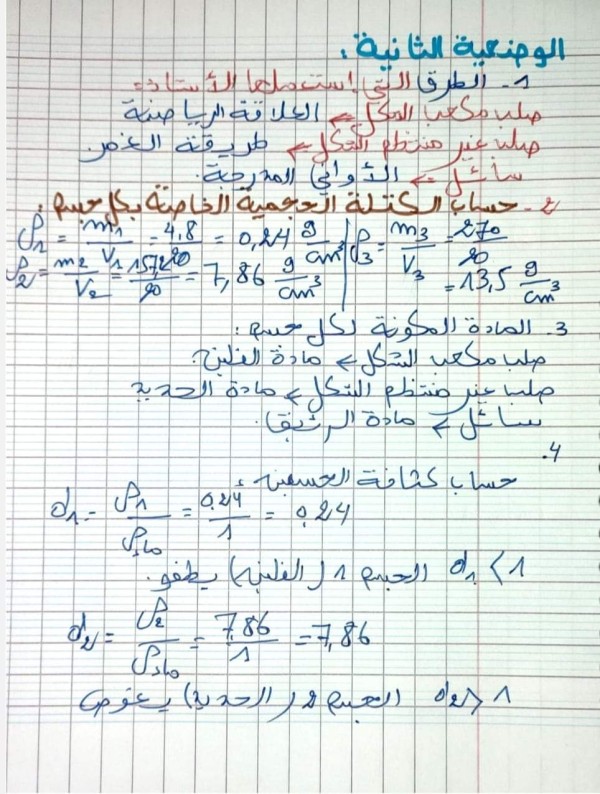 الوضعية الثانية.
1- الطرق التي استعملها الأستاذ:
صلب مكعب الشكل ← العلاقة الرياضية
صلب غير منتظم الشكل ← طريقة الغمر.
سائل ← الأواني المدرجة.
2- حساب الكتلة الحجمية الخاصة بكل جسم:
ρ1 = m1/V1 = 4,8/20 = 0,24 g/cm³ | ρ3 = m3/V3 = 270/20
ρ2 = m2/V2 = 157,2/20 = 7,86 g/cm³ | = 13,5 g/cm³
3. المادة المكونة لكل جسم:
صلب مكعب الشكل ← مادة الفلين.
صلب غير منتظم الشكل ← مادة الحديد
سائل ← مادة الزئبق.
4.
حساب كثافة الجسمين:
d1 = ρ1/ρماء = 0,24/1 = 0,24
d1 < 1 الجسم 1 (الفلين) يطفو.
d2 = ρ2/ρماء = 7,86/1 = 7,86
d2 > 1 الجسم 2 (الحديد) يغوص